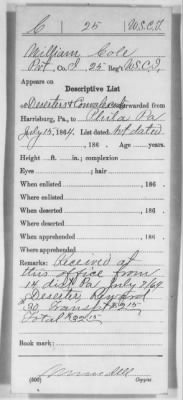 C 25 U.S.C.T.
William Cole
Pvt, Co. I, 25 Reg't U.S.C.I.
Appears on
Descriptive List
of Deserters & Convalescents forwarded from
Harrisburg, Pa., to Phila Pa
July 15, 1864. List dated: Not dated
, 186 . Age years.
Height ft. in.; complexion
Eyes ; hair
When enlisted , 186 .
Where enlisted
When deserted , 186 .
Where deserted
When apprehended , 186 .
Where apprehended
Remarks: Received at
this office from
14 dist Pa July 7/64.
Deserter, Reward
30, Transpt $2.15
Total $32.15
Book mark:
(606) Copyist.